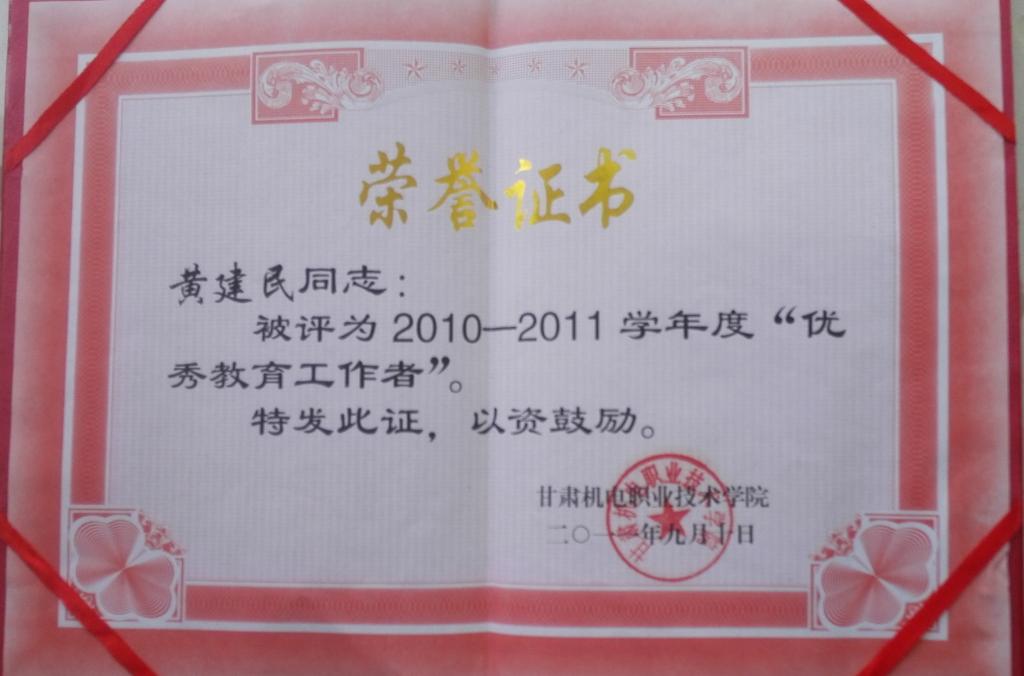 荣誉证书
黄建民同志：
被评为 2010—2011 学年度“优
秀教育工作者”。
特发此证，以资鼓励。
甘肃机电职业技术学院
二〇一一年九月十日
甘肃机电职业技术学院